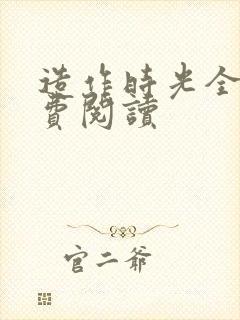 造作時光全
費閱讀
官二爺